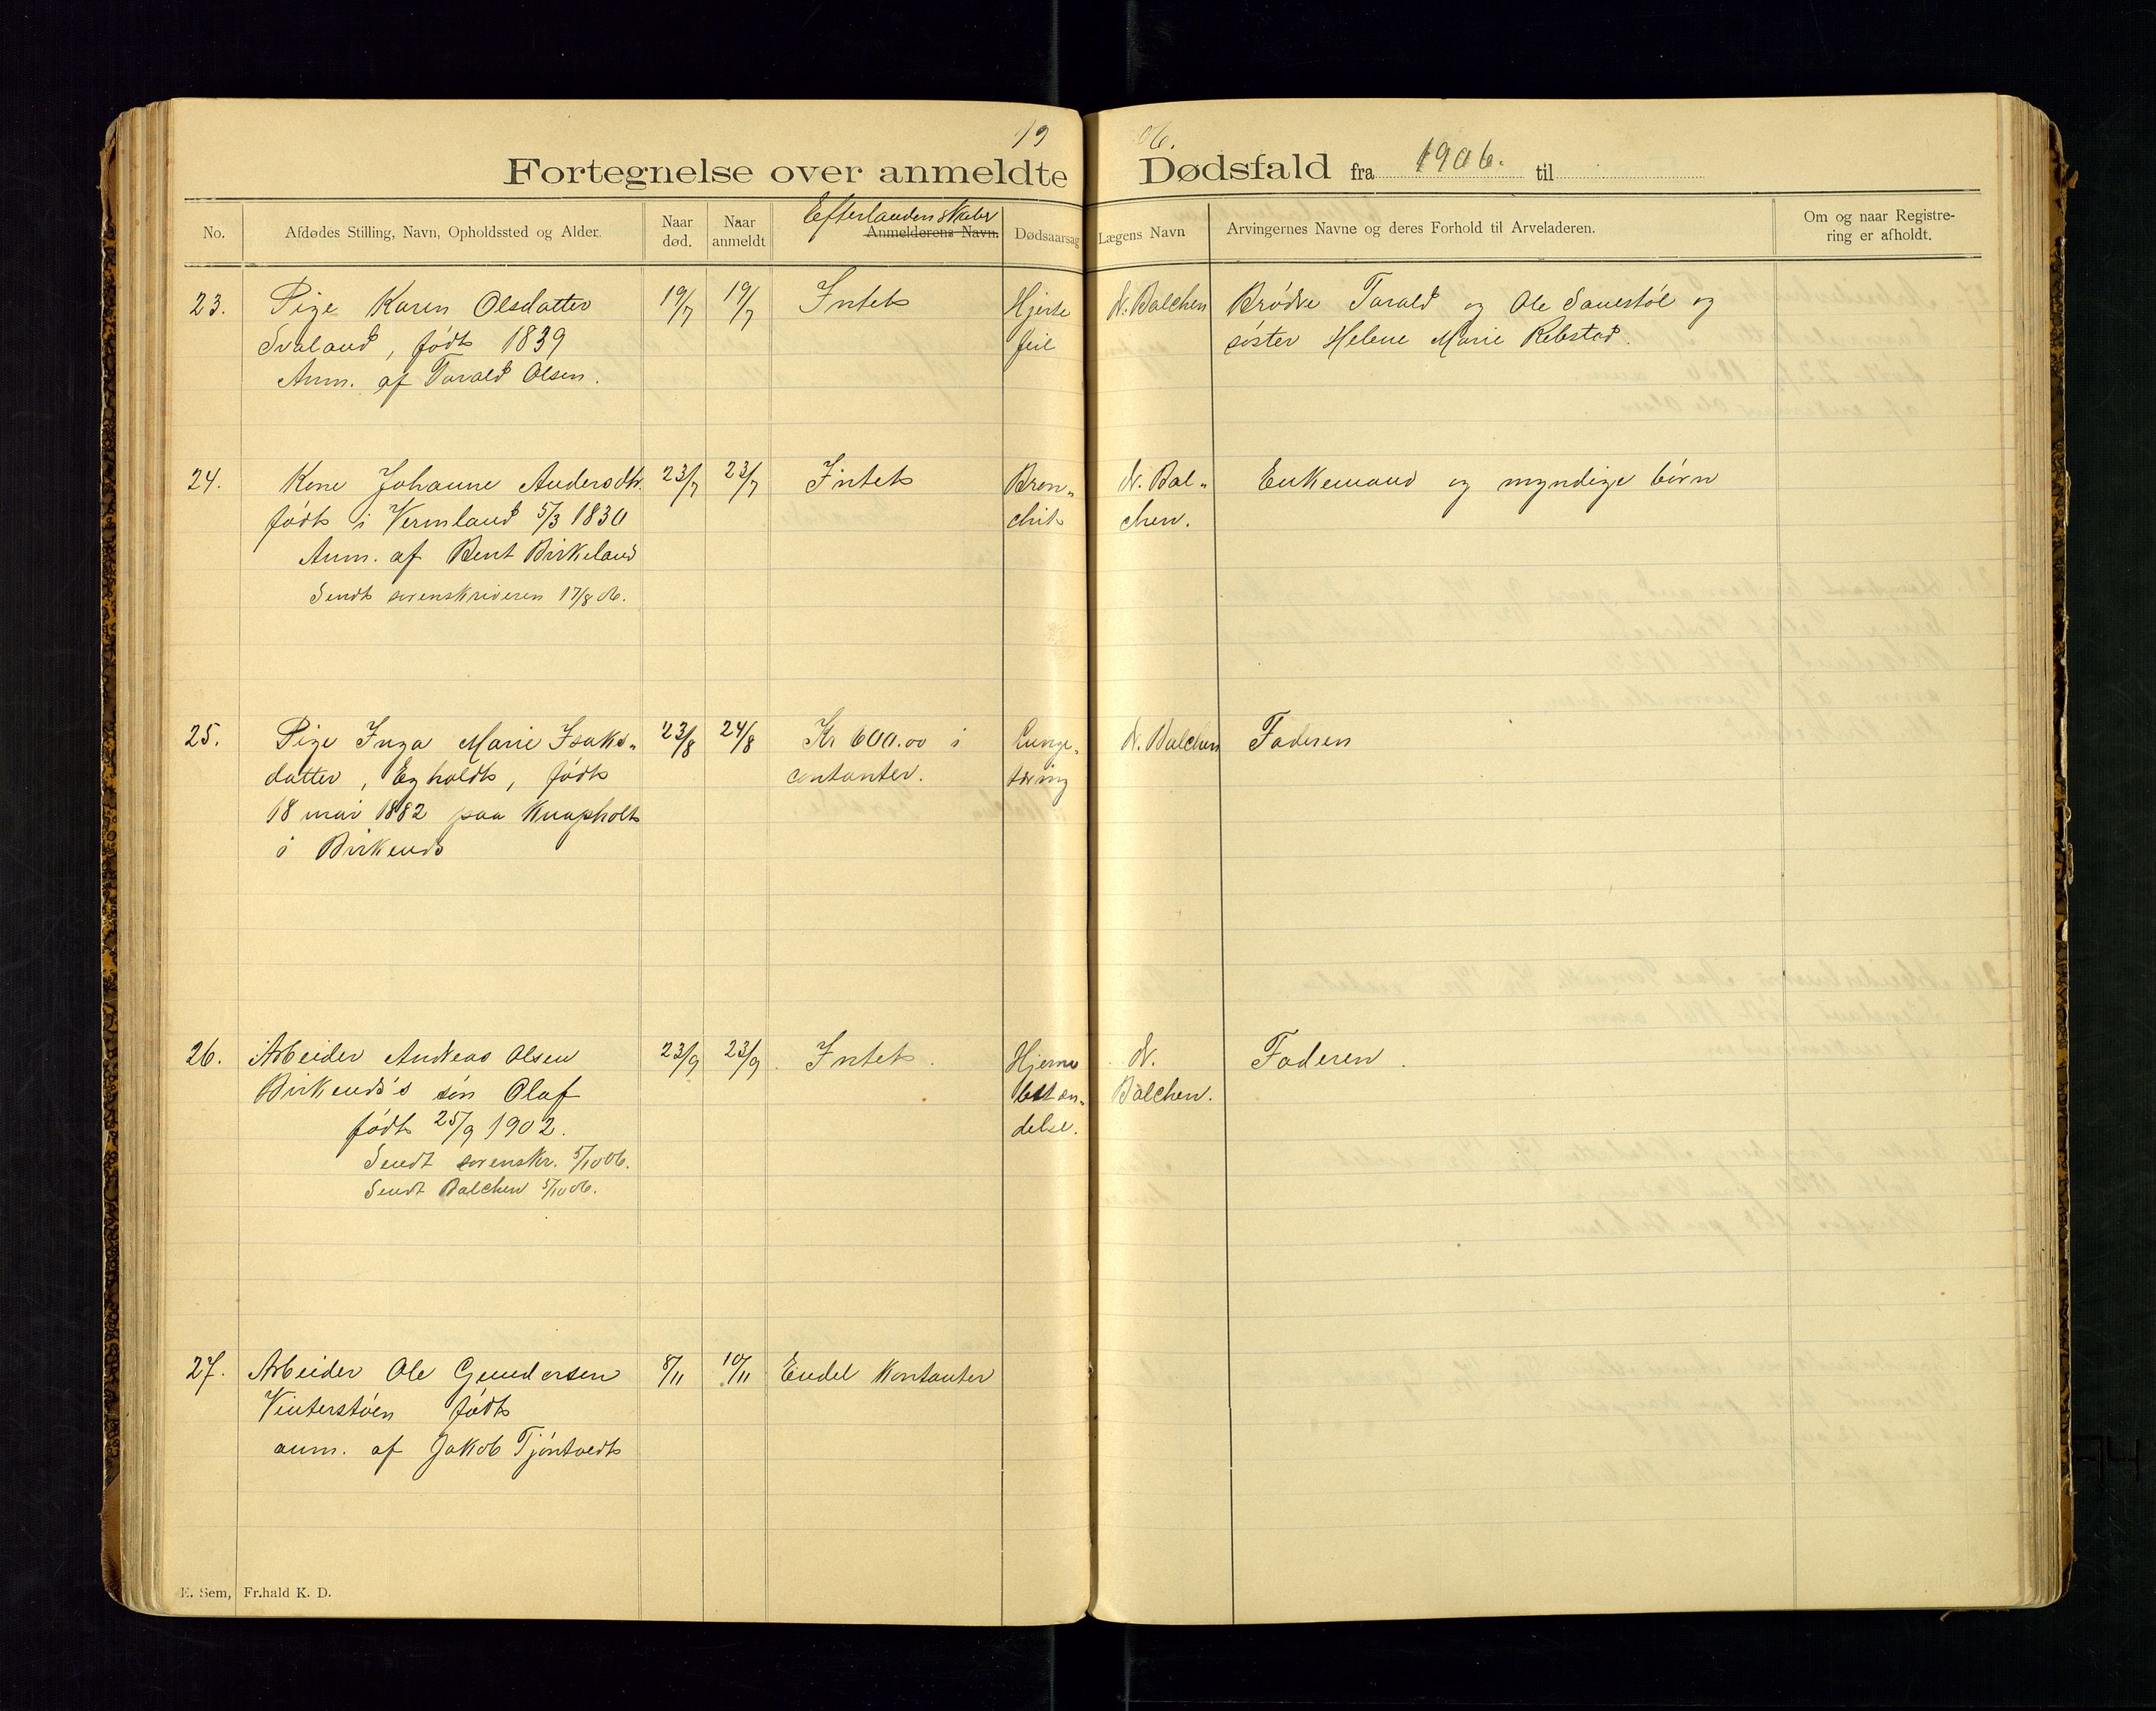 19 06.
Fortegnelse over anmeldte Dødsfald fra 1906. til
No. Afdødes Stilling, Navn, Opholdssted og Alder. Naar død. Naar anmeldt Efterladenskaber Anmelderens Navn. Dødsaarsag Lægens Navn Arvingernes Navne og deres Forhold til Arveladeren. Om og naar Registrering er afholdt.
23. Pige Karen Olsdatter 19/7 19/7 Intet Hjerte N. Balchen Brødre Tarald og Ole Sauestøl og
Svaland, født 1839 feil søster Helene Marie Rebstad.
Anm. af Tarald Olsen.
24. Kone Johanne Andersdtr. 23/7 23/7 Intet Bron„ N. Bal„ Enkemand og myndige børn
født i Vermland 5/3 1830 chit chen.
Anm. af Bent Birkeland
Sendt sorenskriveren 17/8 06.
25. Pige Inga Marie Isaks„ 23/8 24/8 Kr 600.00 i Lunge„ N. Balchen Faderen
datter, Egholdt, født contanter. tæring
18 mai 1882 paa Knapholt
i Birkenæs
26. Arbeider Andreas Olsen 23/9 23/9 Intet. Hjerne N. Faderen.
Birkenæs's søn Olaf betæn„ Balchen.
født 25/9 1902. delse.
Sendt sorenskr. 5/10 06.
Sendt Balchen 5/10 06.
27. Arbeider Ole Gundersen 8/11 10/11 Endel Kontanter
Vinterstøen født
anm. af Jakob Tjøntvedt
E. Sem, Fr.hald K. D.